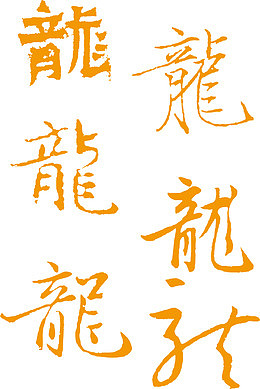 龍
龍
龍
龍
龍
龍